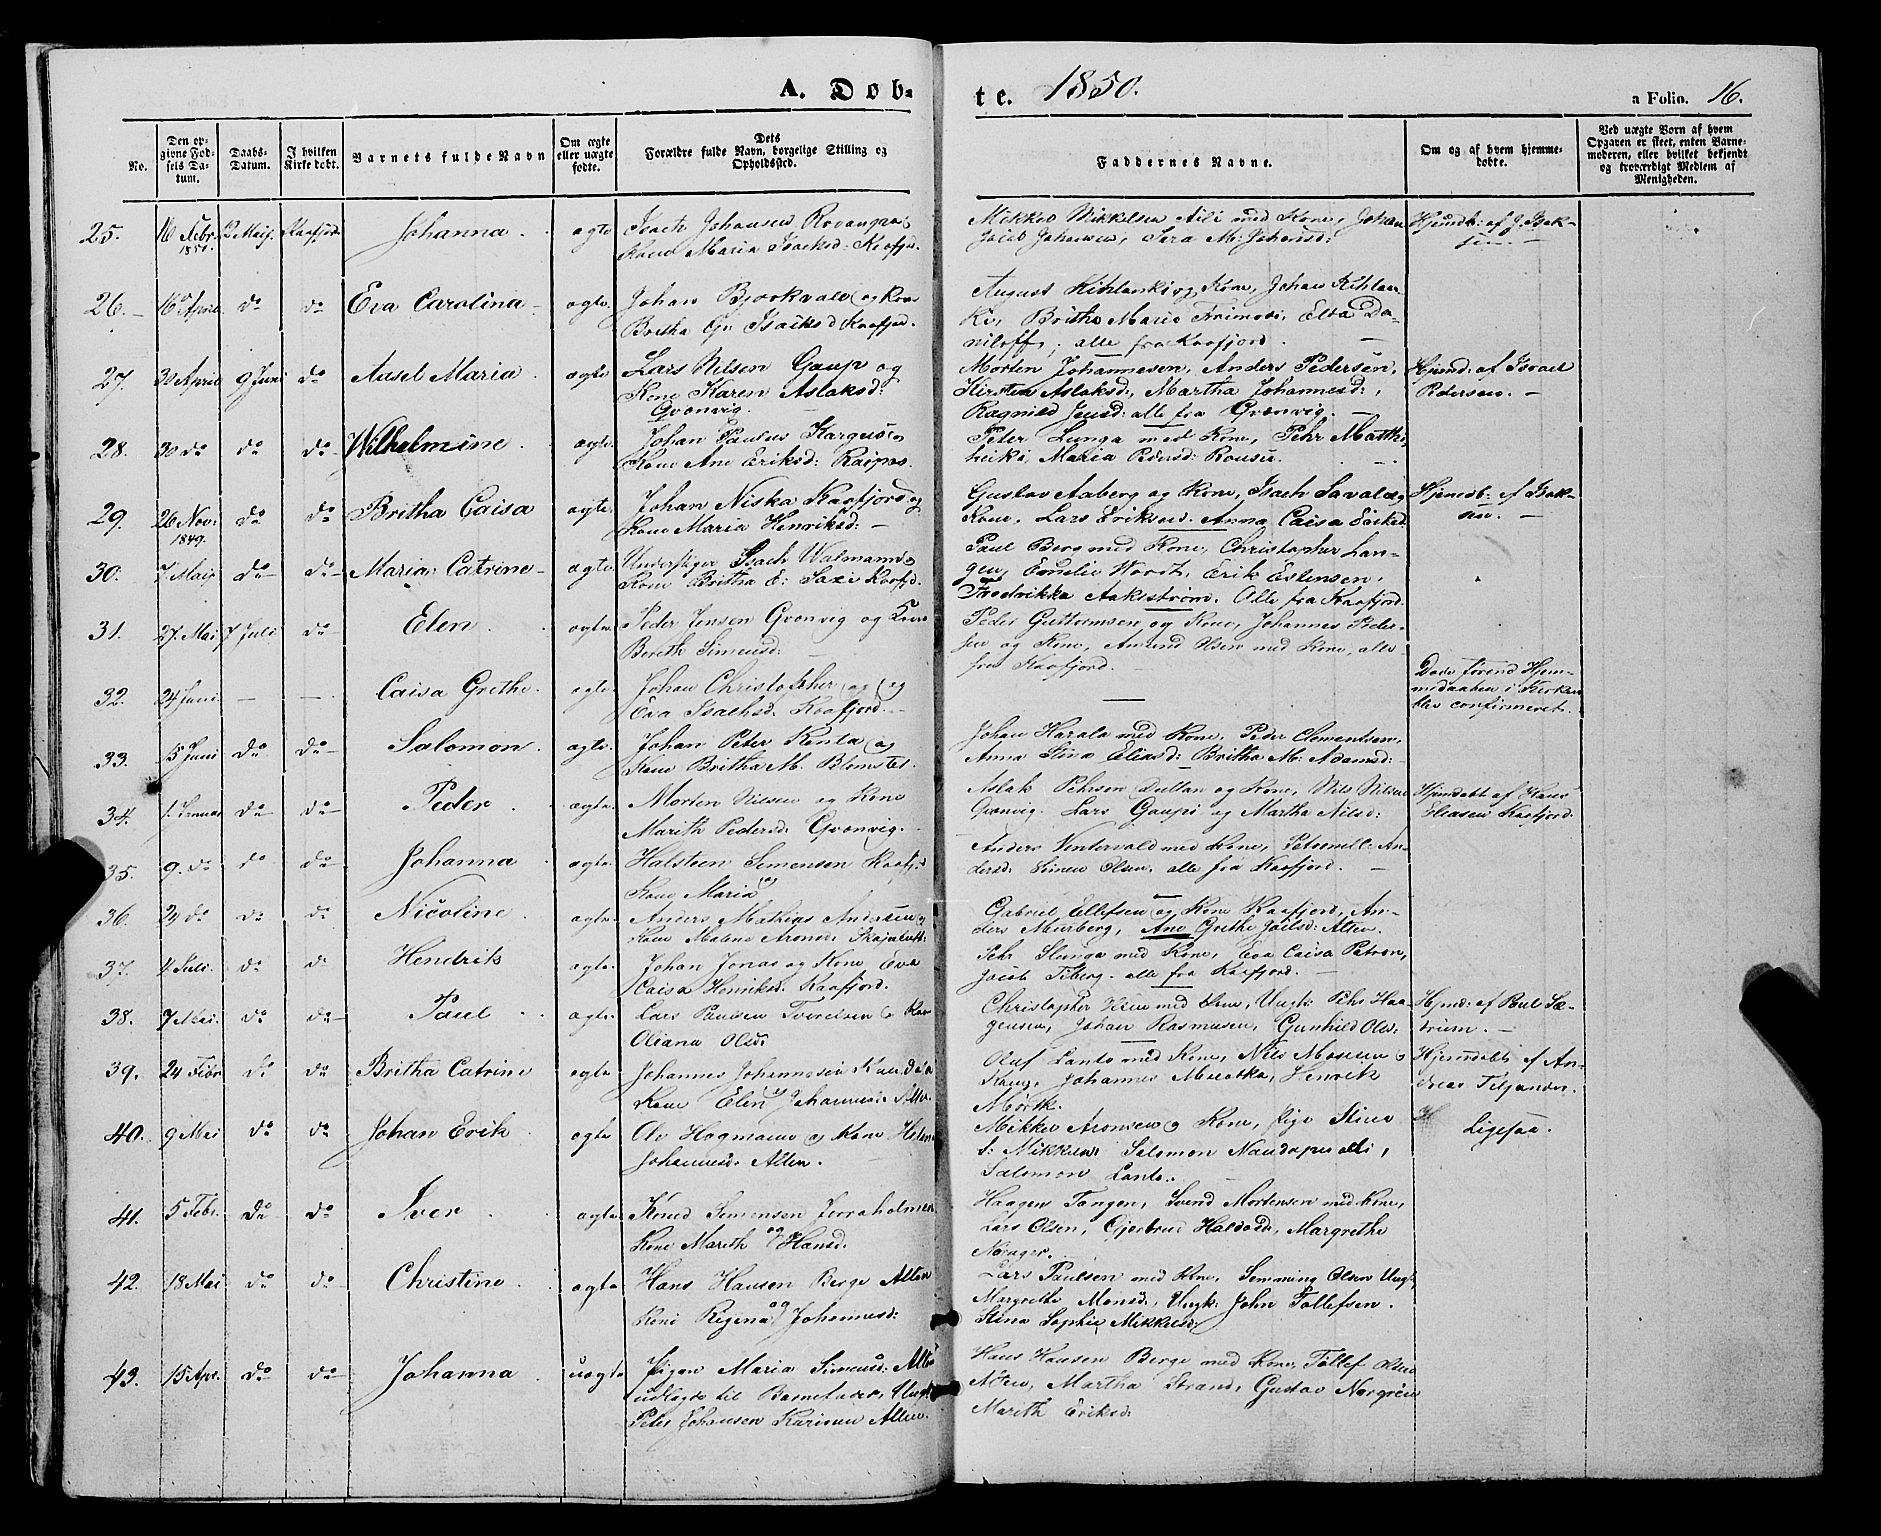 A. Døb-
te. 1850.
a Folio. 16.
No.
Den op-
givne Fød-
sels Da-
tum.
Daabs-
Datum.
I hvilken
Kirke døbt.
Barnets fulde Navn
Om ægte
eller uægte
fødte.
Dets
Forældre fulde Navn, borgelige Stilling og
Opholdssted.
Faddernes Navne.
Om og af hvem hjemme-
døbte.
Ved uægte Born af hvem
Opgaven er skeet, enten Barne-
moderen, eller hvilket bekjendt
og troværdigt Medlem af
Menigheden.
25. 16 Febr. 1850. 12 Mai. Kaafjord Johanna ægte Isach Johansen
Kone Maria Isaksd: Kaafjd.
Mikkel Mikkelsen Aili med Kone, Johan
Jacob Johansen, Sara M: Johansd:
Hjemdb: af J. Isak-
sen
26. 16 April do do Eva Carolina ægte Johan Bjorkvald og Kone
Britha Gr Isaksd Kaafjd.
August Kihlanki og Kone, Johan Kihlan-
ki, Britha Maria Frimodi, Elsa Da-
niloff, alle fra Kaafjord.
27. 30 April 9 Juni do Ansel Maria ægte Lars Nilsen Gaup og
Kone Karen Aslaksd:
Qvænvig.
Morten Johannesen, Anders Pedersen,
Kirsten Aslaksd:, Martha Johannesd:,
Ragnild Jensd: alle fra Qvænvig.
Hjemd. af Israel
Pedersen.
28. 30 do do do Wilhelmine ægte Johan Paulus Kargus og
Kone Ane Eriksd: Raipas.
Peter Lunga med Kone, Pehr Matthi
heiki, Maria Pedersd: Rousu.
29. 26 Nov: 1849. do do Britha Caisa ægte Johan Niska Kaafjord og
Kone Maria Henriksd:
Gustav Aaberg og Kone, Isach Lavald og
Kone, Lars Eriksen. Anna Caisa
Hjemdb: af Isak-
sen
30. 7 Mai do do Maria Catrine ægte Understiger Isach Walmann og
Kone Britha E: Saxi Kaafjd.
Paul Berg med Kone, Christopher Lan-
gen, Emelie Woodt, Erik Estensen,
Fredrikka Aakeström. Alle fra Kaafjord.
31. 27. Mai 7 Juli do Elen ægte Peder Jensen Qvænvig og Kone
Bereth Simensd:
Peder Guttormsen og Kone, Johannes Peder-
sen og Kone, Amund Olsen med Kone, alle
fra Kaafjord.
32. 24 Juni Caisa Grethe ægte Johan Christopher og
Eva Isachsd. Kaafjord.
Døde førend Hjem-
medaaben i Kirken
blev confirmeret.
33. 5 Juni do do Salomon ægte Johan Peter Kenta og
Kone Britha M. Blomster.
Johan Harala med Kone, Peder Clementsen,
Anna Stina Eliasd: Britha M: Adamsd:
34. do do Peder ægte Morten Nilsen og Kone
Marith Pedersd: Qvænvig.
Aslak Pehrsen og Kone, Nils Nilsen
Qvænvig. Lars Gaupi og Martha Nilsd:
Hjemdøbt af Hans
Eliasen Kaafjord.
35. 9. do do do Johanna ægte Halsteen Simensen Kaafjd
Kone Maria og
Anders Vintervald med Kone, Petronell: An-
dersd. Simen Olsen, alle fra Kaafjord.
36. 24 do do do Nicoline ægte Anders Mathias Andersen og
Kone Malene Aronsd.
Gabriel Ellefsen og Kone Kaafjord, An-
ders Murberg, Ane Grethe Joelsd: Alten.
37. 4 Juli do do Hendrik ægte Johan Jonas og Kone Eva
Caisa Henriksd: Kaafjord.
Pehr Slunga med Kone, Eva Caisa Petron,
Jacob Feberg. alle fra Kaafjord.
38. 7 Mai. do do Paul ægte Lars Paulsen Tverelven og Kone
Oliana Olsd:
Christopher Olsen med Kone, Ungk: Pehr Haa-
gensen, Johan Rasmusen, Gunhild Olsd:
Hjmd: af Poul Sæ-
trum.
39. 24 Febr do do Britha Catrine ægte Johannes Johannesen
Kone Elen Johannesd: Alten.
Oluf Lanto med Kone, Nils og
Johannes Muotka, Henrik
Mörtk.
Hjemdøbt af An-
dreas Tiljander.
40. 9 Mai do do Johan Erik ægte Ole Hagmann og Kone Helena
Johannesd. Alten.
Mikkel Aronsen og Kone, Pige Stina
S: Mikkelsd: Salomon
Salomon Lanto.
Ligesaa.
41. 5 Febr. do do Iver ægte Knud Simensen Jorraholmen
Kone Marith og Hansd.
Haagen Tangen, Svend Mortensen med Kone,
Lars Olsen, Gjertrud Haldosd: Margrethe
42. 18 Mai do do Christine ægte Hans Hansen Berge Alten
Kone Regina og Johannesd:
Lars Paulsen med Kone, Semming Olsen Ungk:
Margrethe Monsd:, Ungk: John Tollefsen.
Stina Sophie Mikkelsd:
43. 15 Apr. do do Johanna uægte Pigen Maria Simensd: Alten
udlagde til Barnefader, Ungk.
Peter Johansen Karinen Alten.
Hans Hansen Berge med Kone, Tollef Olsen
Alten, Martha Strand, Gustav
Marith Eriksd: